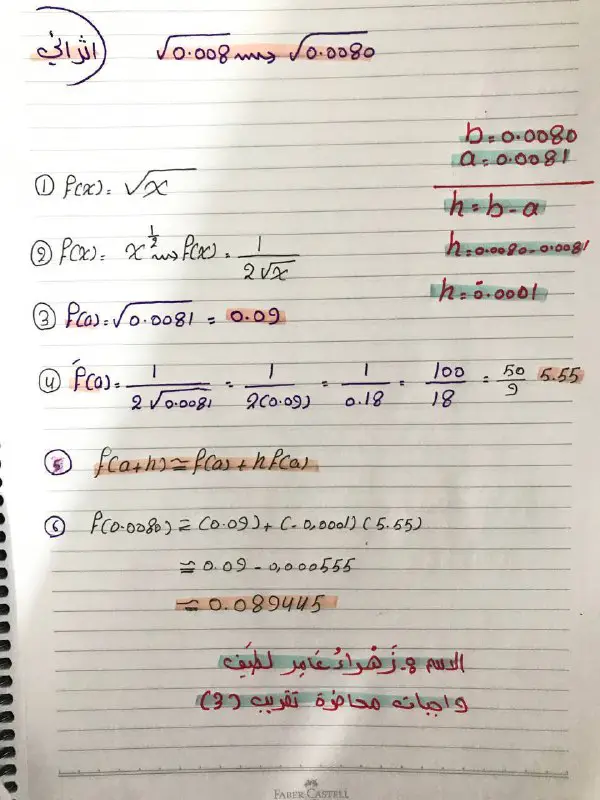 اثرائي √0.008 ⇝ √0.0080
b = 0.0080
a = 0.0081
h = b - a
h = 0.0080 - 0.0081
h = -0.0001
① f(x) = √x
② f(x) = x^1/2 ⇝ f(x) = 1/2√x
③ f(a) = √0.0081 = 0.09
④ f́(a) = 1/2√0.0081 = 1/2(0.09) = 1/0.18 = 100/18 = 50/9 5.55
⑤ f(a+h) ≅ f(a) + h f(a)
⑥ f(0.0080) ≅ (0.09) + (-0,0001) (5.55)
≅ 0.09 - 0,000555
≅ 0.089445
الاسم :- زَهْراءُ عَامِر لطَيِف
واجبات محاضرة تقريب (3)
FABER-CASTELL